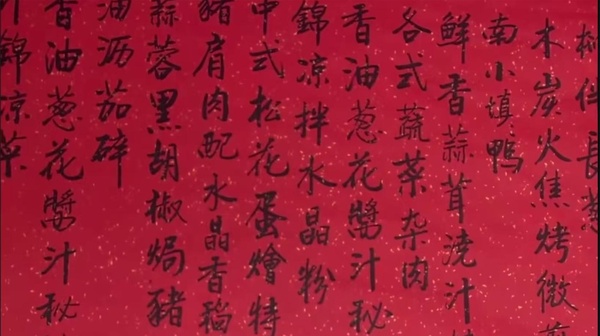 仁長葱
木炭火焦烤微
南小填鴨
鮮香蒜茸澆汁
各式蔬菜杂肉
香油葱花醬汁秘
錦凉拌水晶粉
中式松花蛋燴特
豬肩肉配水晶香
蒜蓉黑胡椒焗豬
油沥茄碎
香油葱花醬汁秘
錦凉菜